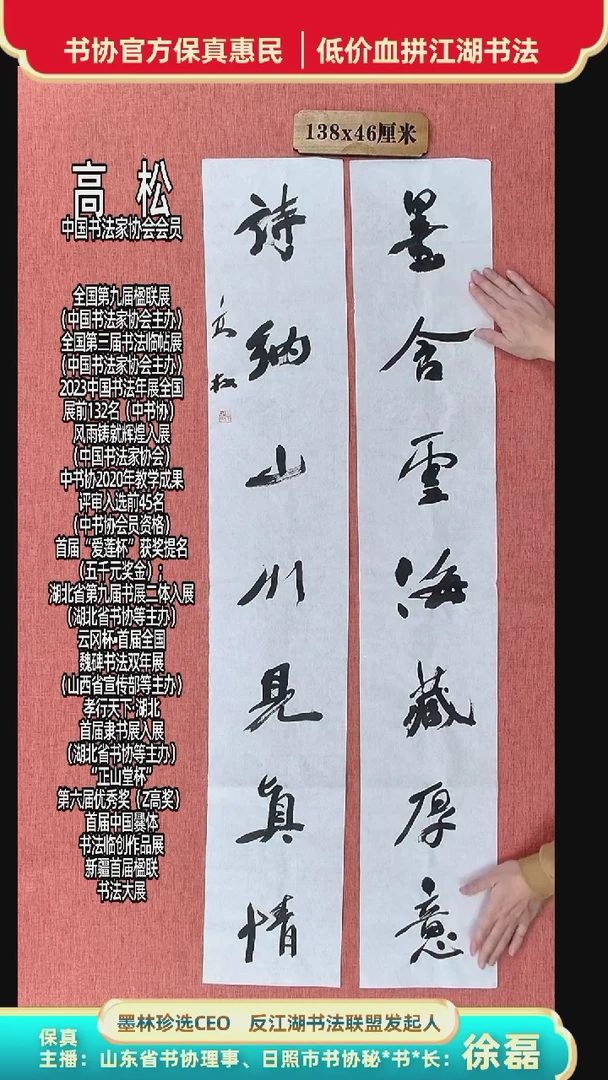 书协官方保真惠民｜低价血拼江湖书法
138x46厘米
高 松
中国书法家协会会员
全国第九届楹联展
（中国书法家协会主办）
全国第三届书法临帖展
（中国书法家协会主办）
2023中国书法年展全国
展前132名（中书协）
风雨铸就辉煌入展
（中国书法家协会）
中书协2020年教学成果
评审入选前45名
（中书协会员资格）
首届“爱莲杯”获奖提名
（五千元奖金）；
湖北省第九届书展二体入展
（湖北省书协等主办）
云冈杯·首届全国
魏碑书法双年展
（山西省宣传部等主办）
孝行天下·湖北
首届隶书展入展
（湖北省书协等主办）
“正山堂杯”
第六届优秀奖（Z高奖）
首届中国爨体
书法临创作品展
新疆首届楹联
书法大展
墨含雲海藏厚意
詩納山川見真情
高松
墨林珍选CEO 反江湖书法联盟发起人
保真
主播：山东省书协理事、日照市书协秘*书*长：徐磊